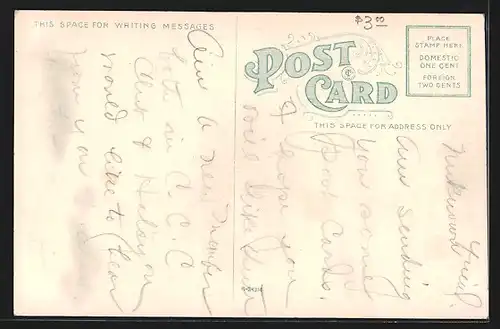 THIS SPACE FOR WRITING MESSAGES
$3.00
POST CARD
PLACE
STAMP HERE
DOMESTIC
ONE CENT
FOREIGN
TWO CENTS
THIS SPACE FOR ADDRESS ONLY
Friend.
Am Sending
you some
Post Cards.
I hope you
will like them
Am a new member
in C.C.C
Club &
would like to hear
from you